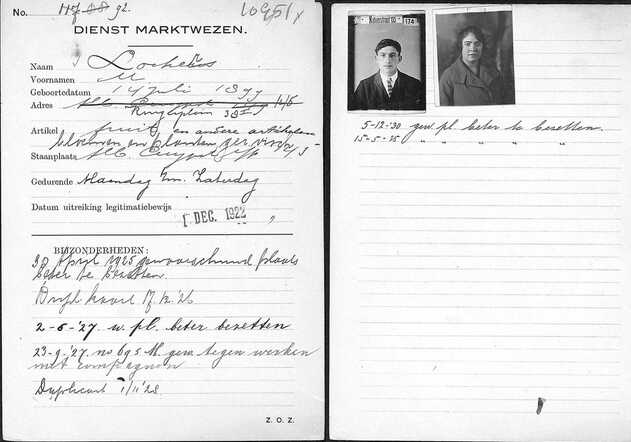 No. 92. 10951
DIENST MARKTWEZEN.
Naam
Voornamen M
Geboortedatum 14 Juli 18
Adres Alb. Cuypstr 145
38
Artikel fruit, en andere artikelen
bloemen en planten
Staanplaats Alb. Cuypstr
Gedurende Maandag t/m. Zaterdag
Datum uitreiking legitimatiebewijs 1 DEC. 1922
BIJZONDERHEDEN:
April 1925 gewaarschuwd plaats
beter te bezetten.
Dupl. kaart 17.12.'26
2-6-'27. w. pl. beter bezetten
23-9-'27. no 695 M. gew. tegen werken
met compagnon
Duplicaat 1/11 '28
Z. O. Z.
174
5-12-'30 gew. pl. beter te bezetten.
15-5-'35 " " " " "